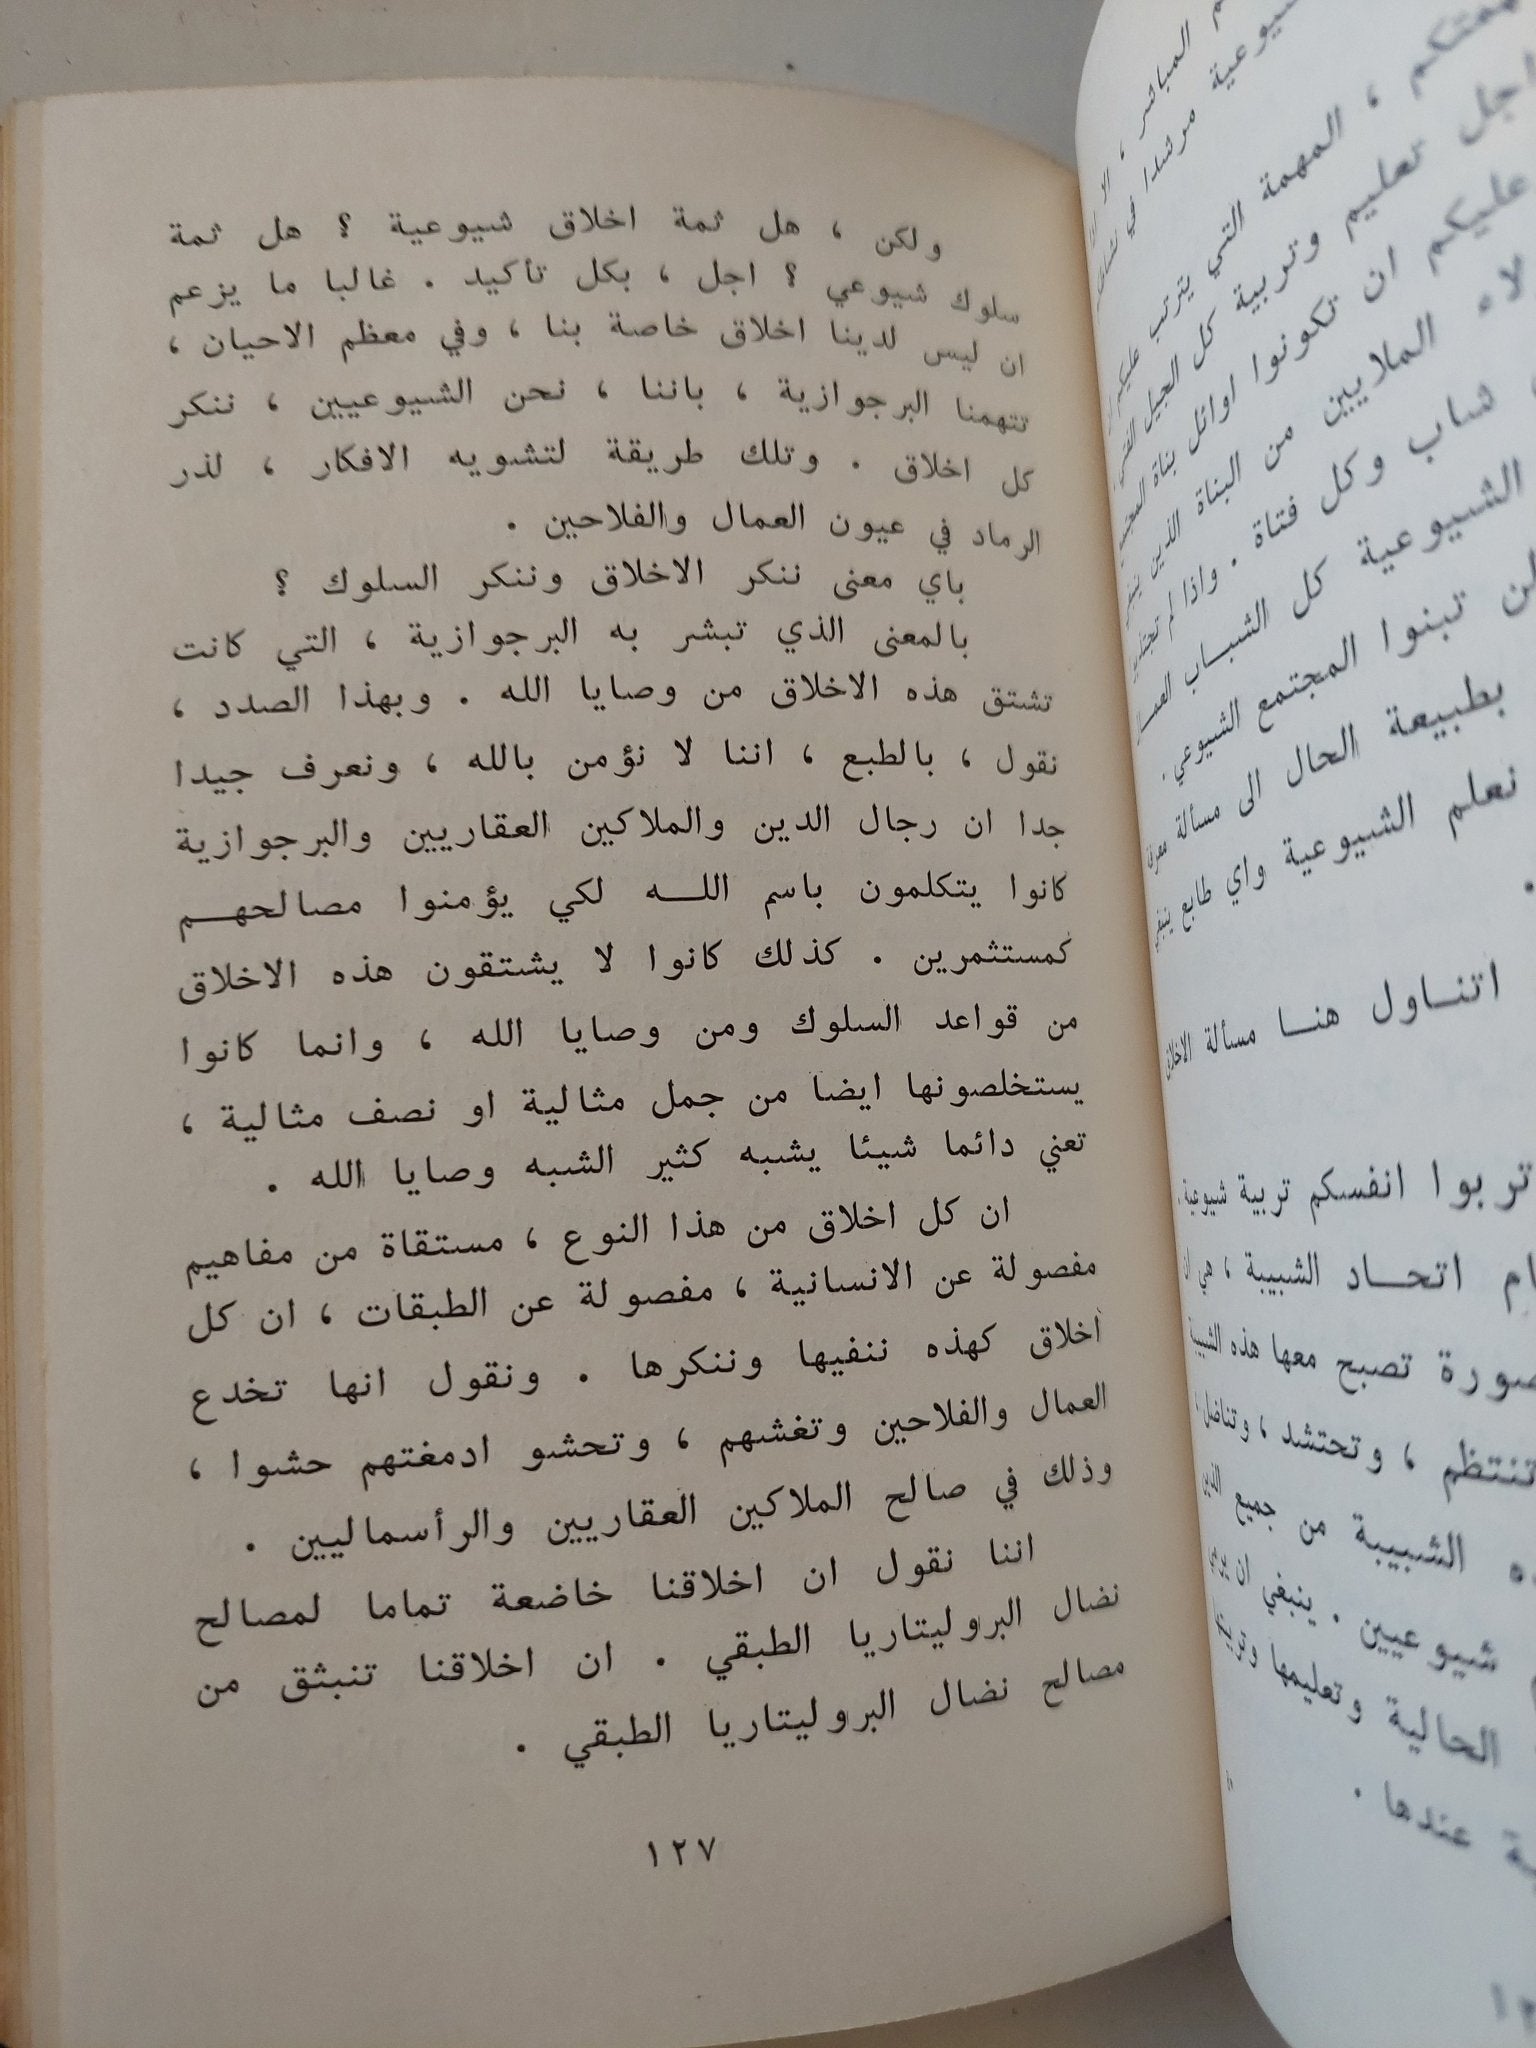 ولكن ، هل ثمة اخلاق شيوعية ؟ هل ثمة
سلوك شيوعي ؟ اجل ، بكل تأكيد . غالبا ما يزعم
ان ليس لدينا اخلاق خاصة بنا ، وفي معظم الاحيان ،
تتهمنا البرجوازية ، باننا ، نحن الشيوعيين ، ننكر
كل اخلاق . وتلك طريقة لتشويه الافكار ، لذر
الرماد في عيون العمال والفلاحين .
باي معنى ننكر الاخلاق وننكر السلوك ؟
بالمعنى الذي تبشر به البرجوازية ، التي كانت
تشتق هذه الاخلاق من وصايا الله . وبهذا الصدد ،
نقول ، بالطبع ، اننا لا نؤمن بالله ، ونعرف جيدا
جدا ان رجال الدين والملاكين العقاريين والبرجوازية
كانوا يتكلمون باسم اللـه لكي يؤمنوا مصالحهـم
كمستثمرين . كذلك كانوا لا يشتقون هذه الاخلاق
من قواعد السلوك ومن وصايا الله ، وانما كانوا
يستخلصونها ايضا من جمل مثالية او نصف مثالية ،
تعني دائما شيئا يشبه كثير الشبه وصايا الله .
ان كل اخلاق من هذا النوع ، مستقاة من مفاهيم
مفصولة عن الانسانية ، مفصولة عن الطبقات ، ان كل
اخلاق كهذه ننفيها وننكرها . ونقول انها تخدع
العمال والفلاحين وتغشهم ، وتحشو ادمغتهم حشوا ،
وذلك في صالح الملاكين العقاريين والرأسماليين .
اننا نقول ان اخلاقنا خاضعة تماما لمصالح
نضال البروليتاريا الطبقي . ان اخلاقنا تنبثق من
مصالح نضال البروليتاريا الطبقي .
١٢٧
المباشر ،
شيوعية مرشدا في
، المهمة التي يترتب عليكم
اجل تعليم وتربية كل الجيل
عليكم ان تكونوا اوائل بناة
الملايين من البناة الذين
شاب وكل فتاة . واذا لم
الشيوعية كل الشبـاب
تبنوا المجتمع الشيوعي .
بطبيعة الحال الى مسألة
نعلم الشيوعية واي طابع
اتنـاول هنـا مسألة
تربوا انفسكم تربية شيوعية
اتحـاد الشبيبة ، هي ان
تصبح معها هذه
تنتظم ، وتحتشد ، وتناضل
الشبيبة من جميع
شيوعيين . ينبغي ان
الحالية وتعليمها
عندها .